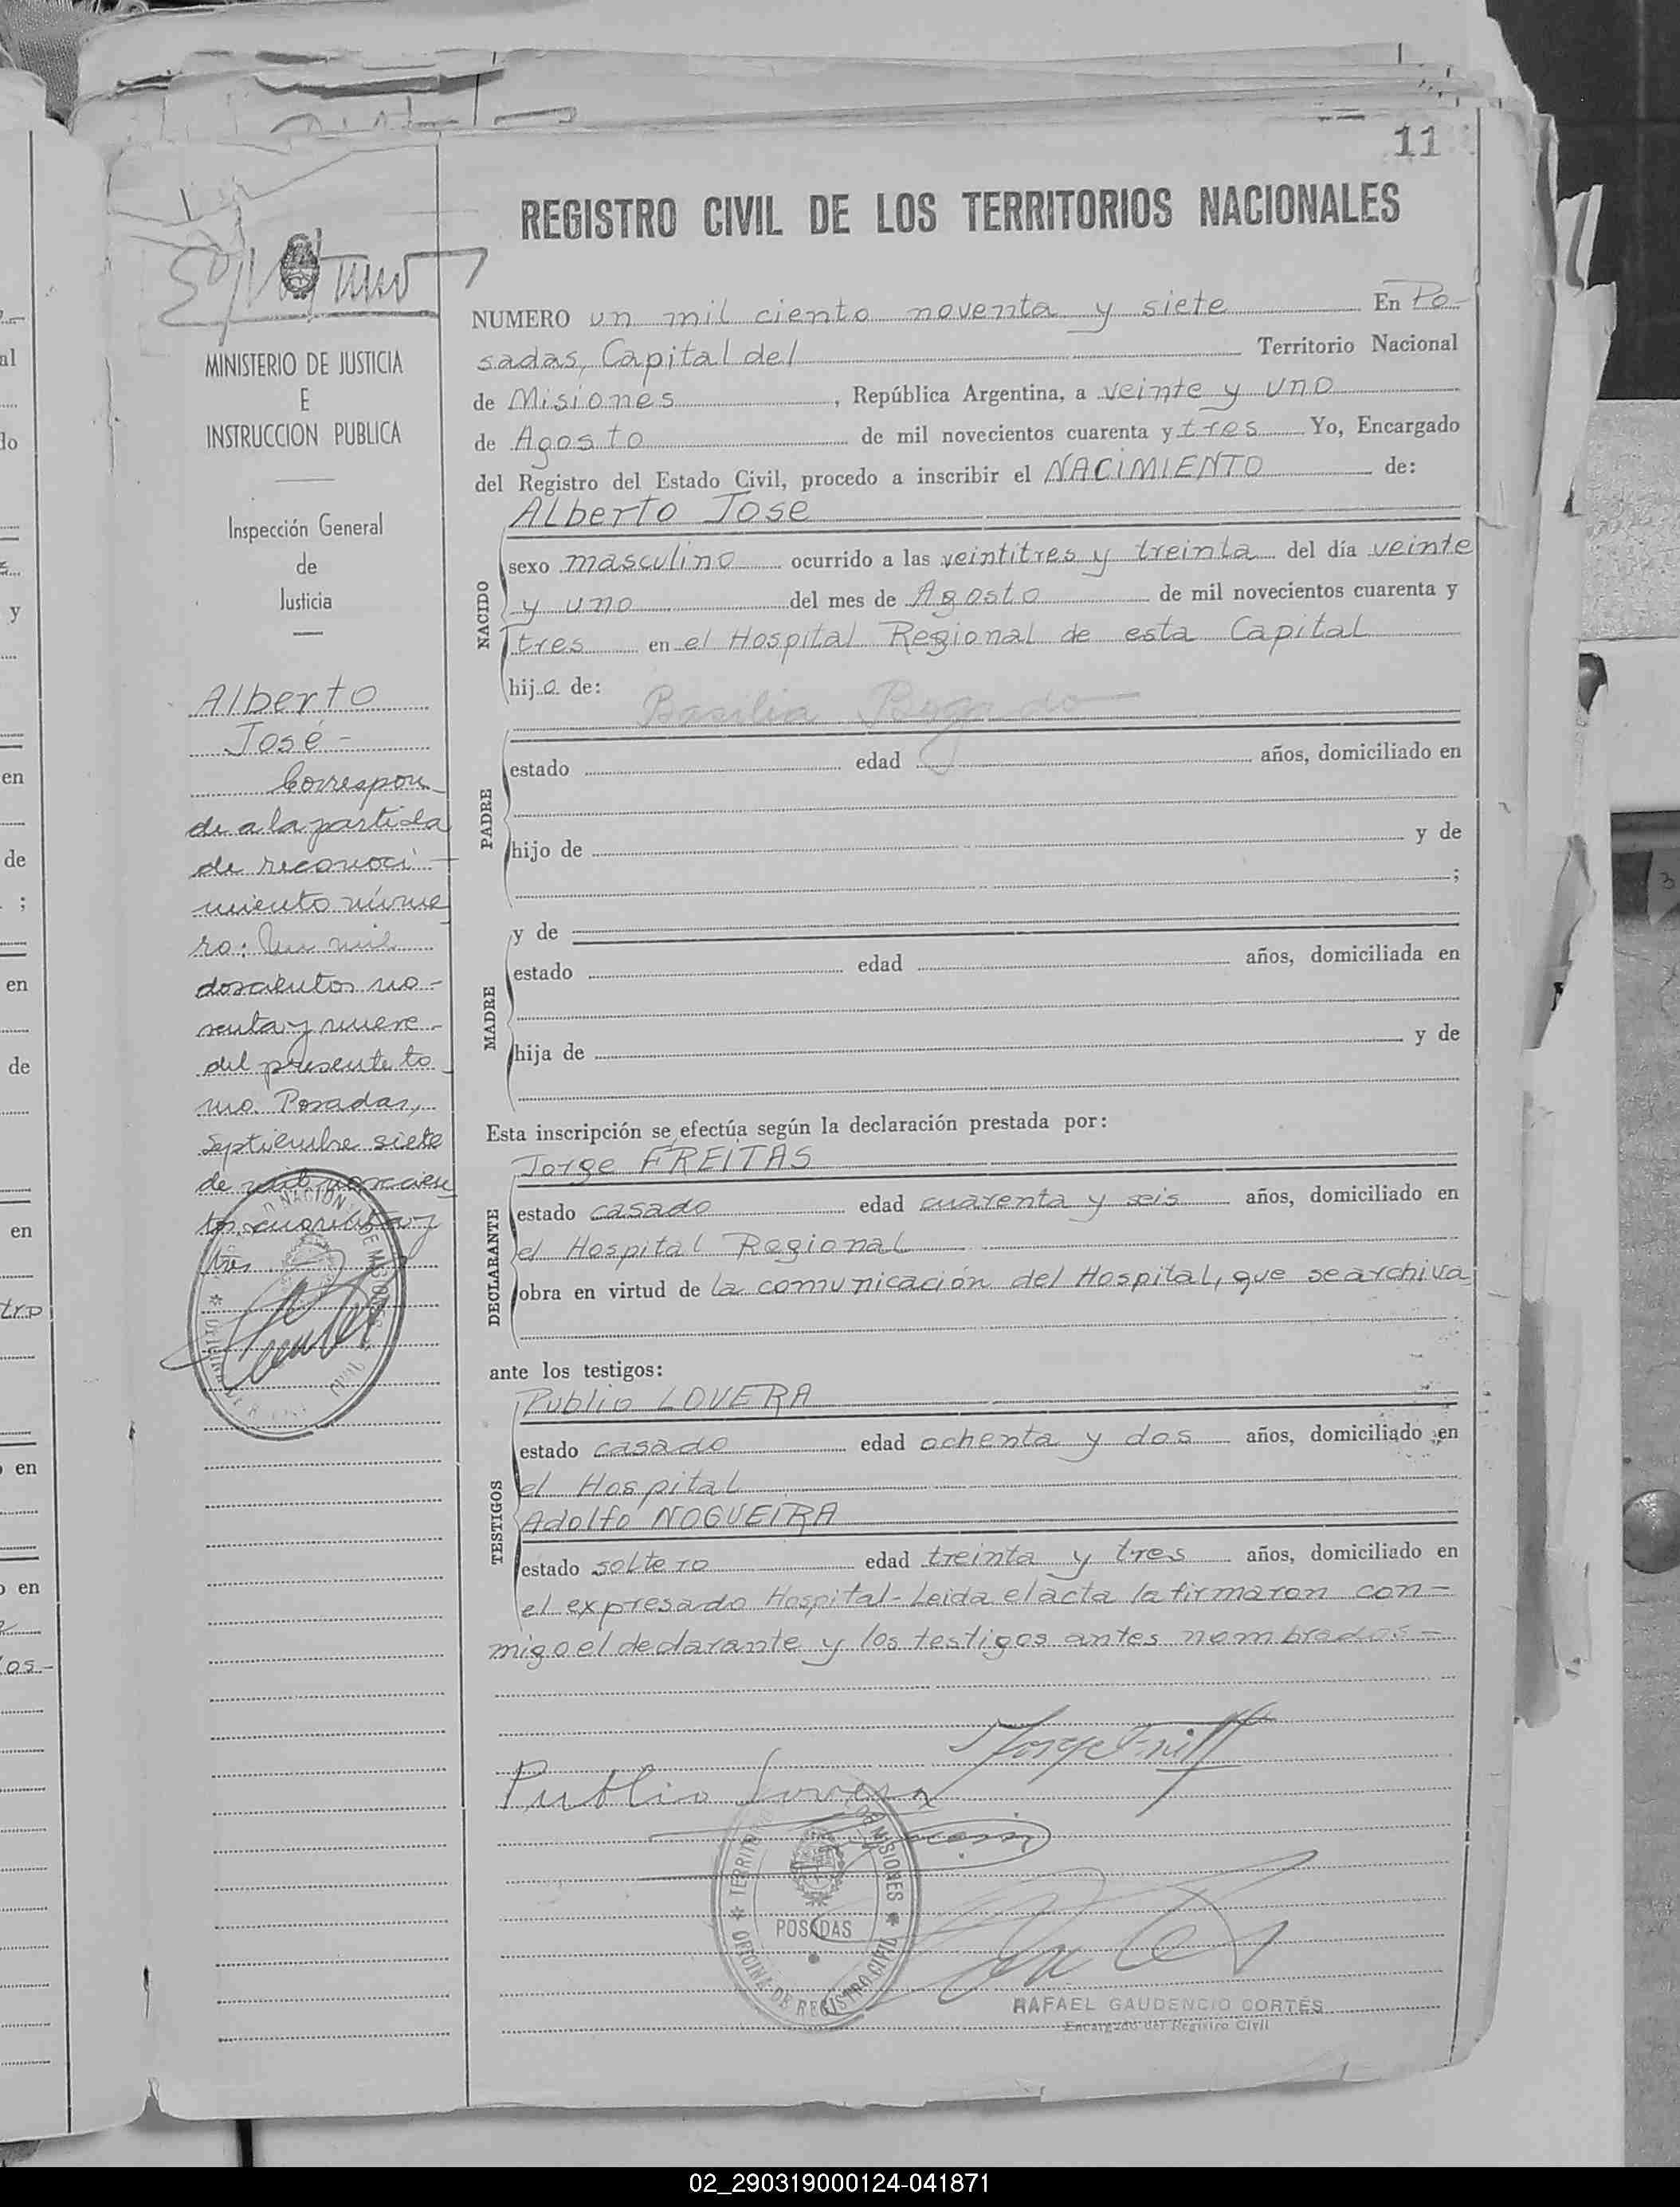 11
REGISTRO CIVIL DE LOS TERRITORIOS NACIONALES
MINISTERIO DE JUSTICIA
E
INSTRUCCION PUBLICA
Inspección General
de
Justicia
Alberto
José -
Correspon
de a la partida
de reconoci-
miento núme
ro: Un mil
doscientos no-
venta y nueve
del presente to
mo. Posadas,
Septiembre siete
de mil novecien
tos cuarenta y
tres
NUMERO un mil ciento noventa y siete En Po-
sadas, Capital del Territorio Nacional
de Misiones, República Argentina, a veinte y uno
de Agosto de mil novecientos cuarenta y tres Yo, Encargado
del Registro del Estado Civil, procedo a inscribir el NACIMIENTO de:
NACIDO
Alberto Jose
sexo masculino ocurrido a las veintitres y treinta del día veinte
y uno del mes de Agosto de mil novecientos cuarenta y
tres en el Hospital Regional de esta Capital
hijo de:
Basilia Bogado
PADRE
estado edad años, domiciliado en
hijo de y de
;
y de
MADRE
estado edad años, domiciliada en
hija de y de
Esta inscripción se efectúa según la declaración prestada por:
DECLARANTE
Jorge FREITAS
estado casado edad cuarenta y seis años, domiciliado en
el Hospital Regional
obra en virtud de la comunicación del Hospital, que se archiva
ante los testigos:
TESTIGOS
Publio LOVERA
estado casado edad ochenta y dos años, domiciliado en
el Hospital
Adolfo NOGUEIRA
estado soltero edad treinta y tres años, domiciliado en
el expresado Hospital- Leida el acta la firmaron con-
migo el declarante y los testigos antes nombrados-
Publio Lovera
TERRITORIO DE MISIONES
POSADAS
OFICINA DE REGISTRO CIVIL
RAFAEL GAUDENCIO CORTÉS
Encargado del Registro Civil
al
do
y
en
de
;
en
de
en
en
en
os-
02_290319000124-041871